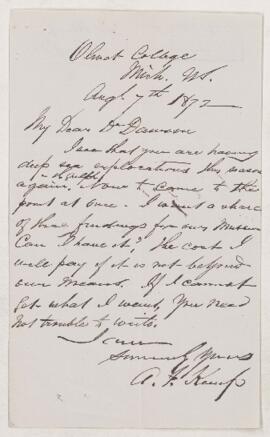 Olivet College
Mich. US.
Augt 7th 1872
My Dear Dr Dawson
I see that you are having
deep sea explorations this season
again. Now to come to the
point at once. I want a share
of those findings for our Museum
Can I have it? The cost I
will pay if it is not beyond
our means. If I cannot
get what I want, you need
not trouble to write.
I am
Sincerely Yours
A. F.